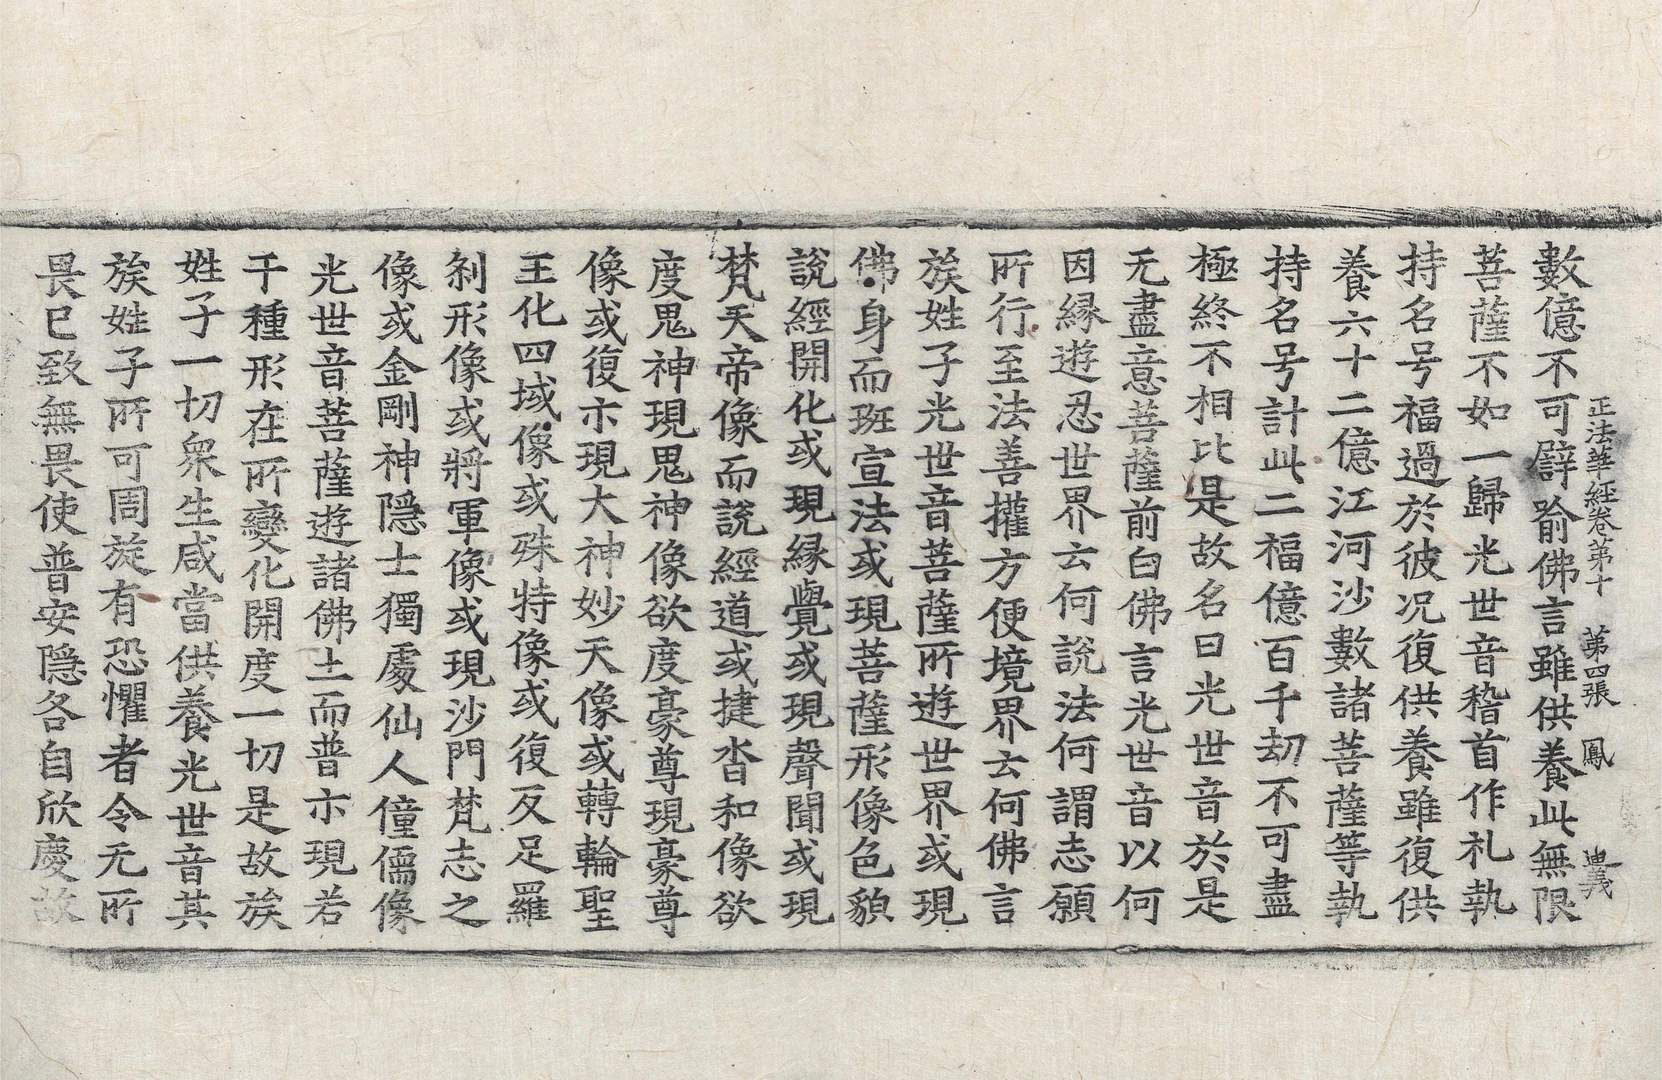 正法華經卷第十　第四張　鳳
數億不可譬喻佛言雖供養此無限
菩薩不如一歸光世音稽首作礼執
持名号福過於彼况復供養雖復供
養六十二億江河沙數諸菩薩等執
持名号計此二福億百千劫不可盡
極終不相比是故名曰光世音於是
无盡意菩薩前白佛言光世音以何
因緣遊忍世界云何說法何謂志願
所行至法善權方便境界云何佛言
族姓子光世音菩薩所遊世界或現
佛身而班宣法或現菩薩形像色貌
說經開化或現緣覺或現聲聞或現
梵天帝像而說經道或揵沓和像欲
度鬼神現鬼神像欲度豪尊現豪尊
像或復亦現大神妙天像或轉輪聖
王化四域像或殊特像或復反足羅
剎形像或將軍像或現沙門梵志之
像或金剛神隱士獨處仙人僮儒像
光世音菩薩遊諸佛土而普亦現若
干種形在所變化開度一切是故族
姓子一切衆生咸當供養光世音其
族姓子所可周旋有恐懼者令无所
畏已致無畏使普安隱各自欣慶故